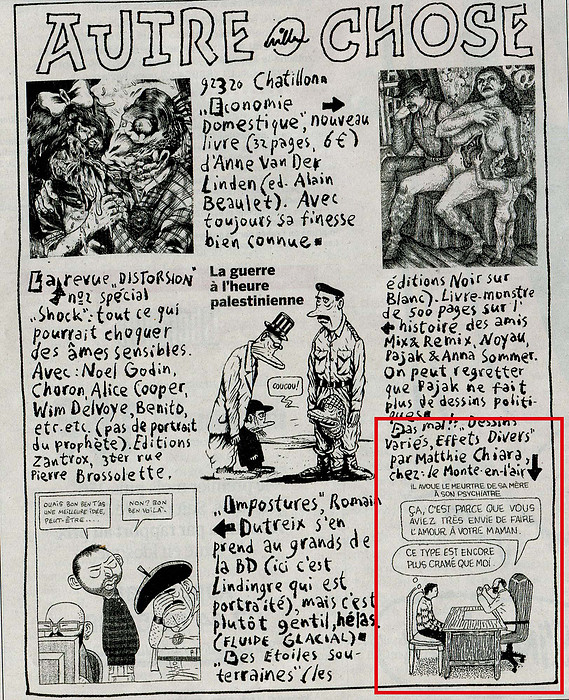 AUTRE CHOSE
92320 Chatillon
„Economie
Domestique", nouveau
livre (32 pages, 6€)
d'Anne Van Der
Linden (ed. Alain
Beaulet). Avec
toujours sa finesse
bien connue.
La revue „DISTORSION"
n°2 spécial
„Shock": tout ce qui
pourrait choquer
des âmes sensibles.
Avec: Noël Godin,
Choron, Alice Cooper,
Wim Delvoye, Benito,
etc. etc. (pas de portrait
du prophète). Editions
Zantrox, 3ter rue
Pierre Brossolette,
La guerre
à l'heure
palestinienne
COUCOU!
éditions Noir sur
Blanc). Livre-monstre
de 500 pages sur l'
histoire des amis
Mix & Remix, Noyau,
Pajak & Anna Sommer.
On peut regretter
que Pajak ne fait
plus de dessins politi-
ques
Pas mal!! „Dessins
Variés, Effets Divers"
par Matthie Chiara,
chez Le Monte-en-l'air
IL AVOUE LE MEURTRE DE SA MÈRE
À SON PSYCHIATRE
ÇA, C'EST PARCE QUE VOUS
AVIEZ TRÈS ENVIE DE FAIRE
L'AMOUR À VOTRE MAMAN.
CE TYPE EST ENCORE
PLUS CRAMÉ QUE MOI.
OUAIS BON BEN T'AS
UNE MEILLEURE IDÉE,
PEUT-ÊTRE....
NON? BON
BEN VOILÀ.
„Impostures", Romain
Dutreix s'en
prend au grands de
la BD (ici c'est
Lindingre qui est
portraité), mais c'est
plutôt gentil, hélas.
(FLUIDE GLACIAL)
„Des Etoiles sou-
terraines" (les